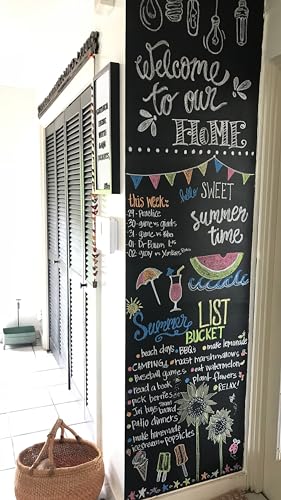 Welcome
to our
HOME
this week:
hello SWEET
summer
time
29 - Practice
30 - game vs giants
31 - game vs
01 - Dr
02 - game vs Yankees
Summer
BUCKET
LIST
beach days
BBQs
make lemonade
CAMPING
roast marshmallows
Baseball games
eat watermelon
read a book
plant flowers
pick berries
RELAX!
patio dinners
make homemade
icecream
popsicles